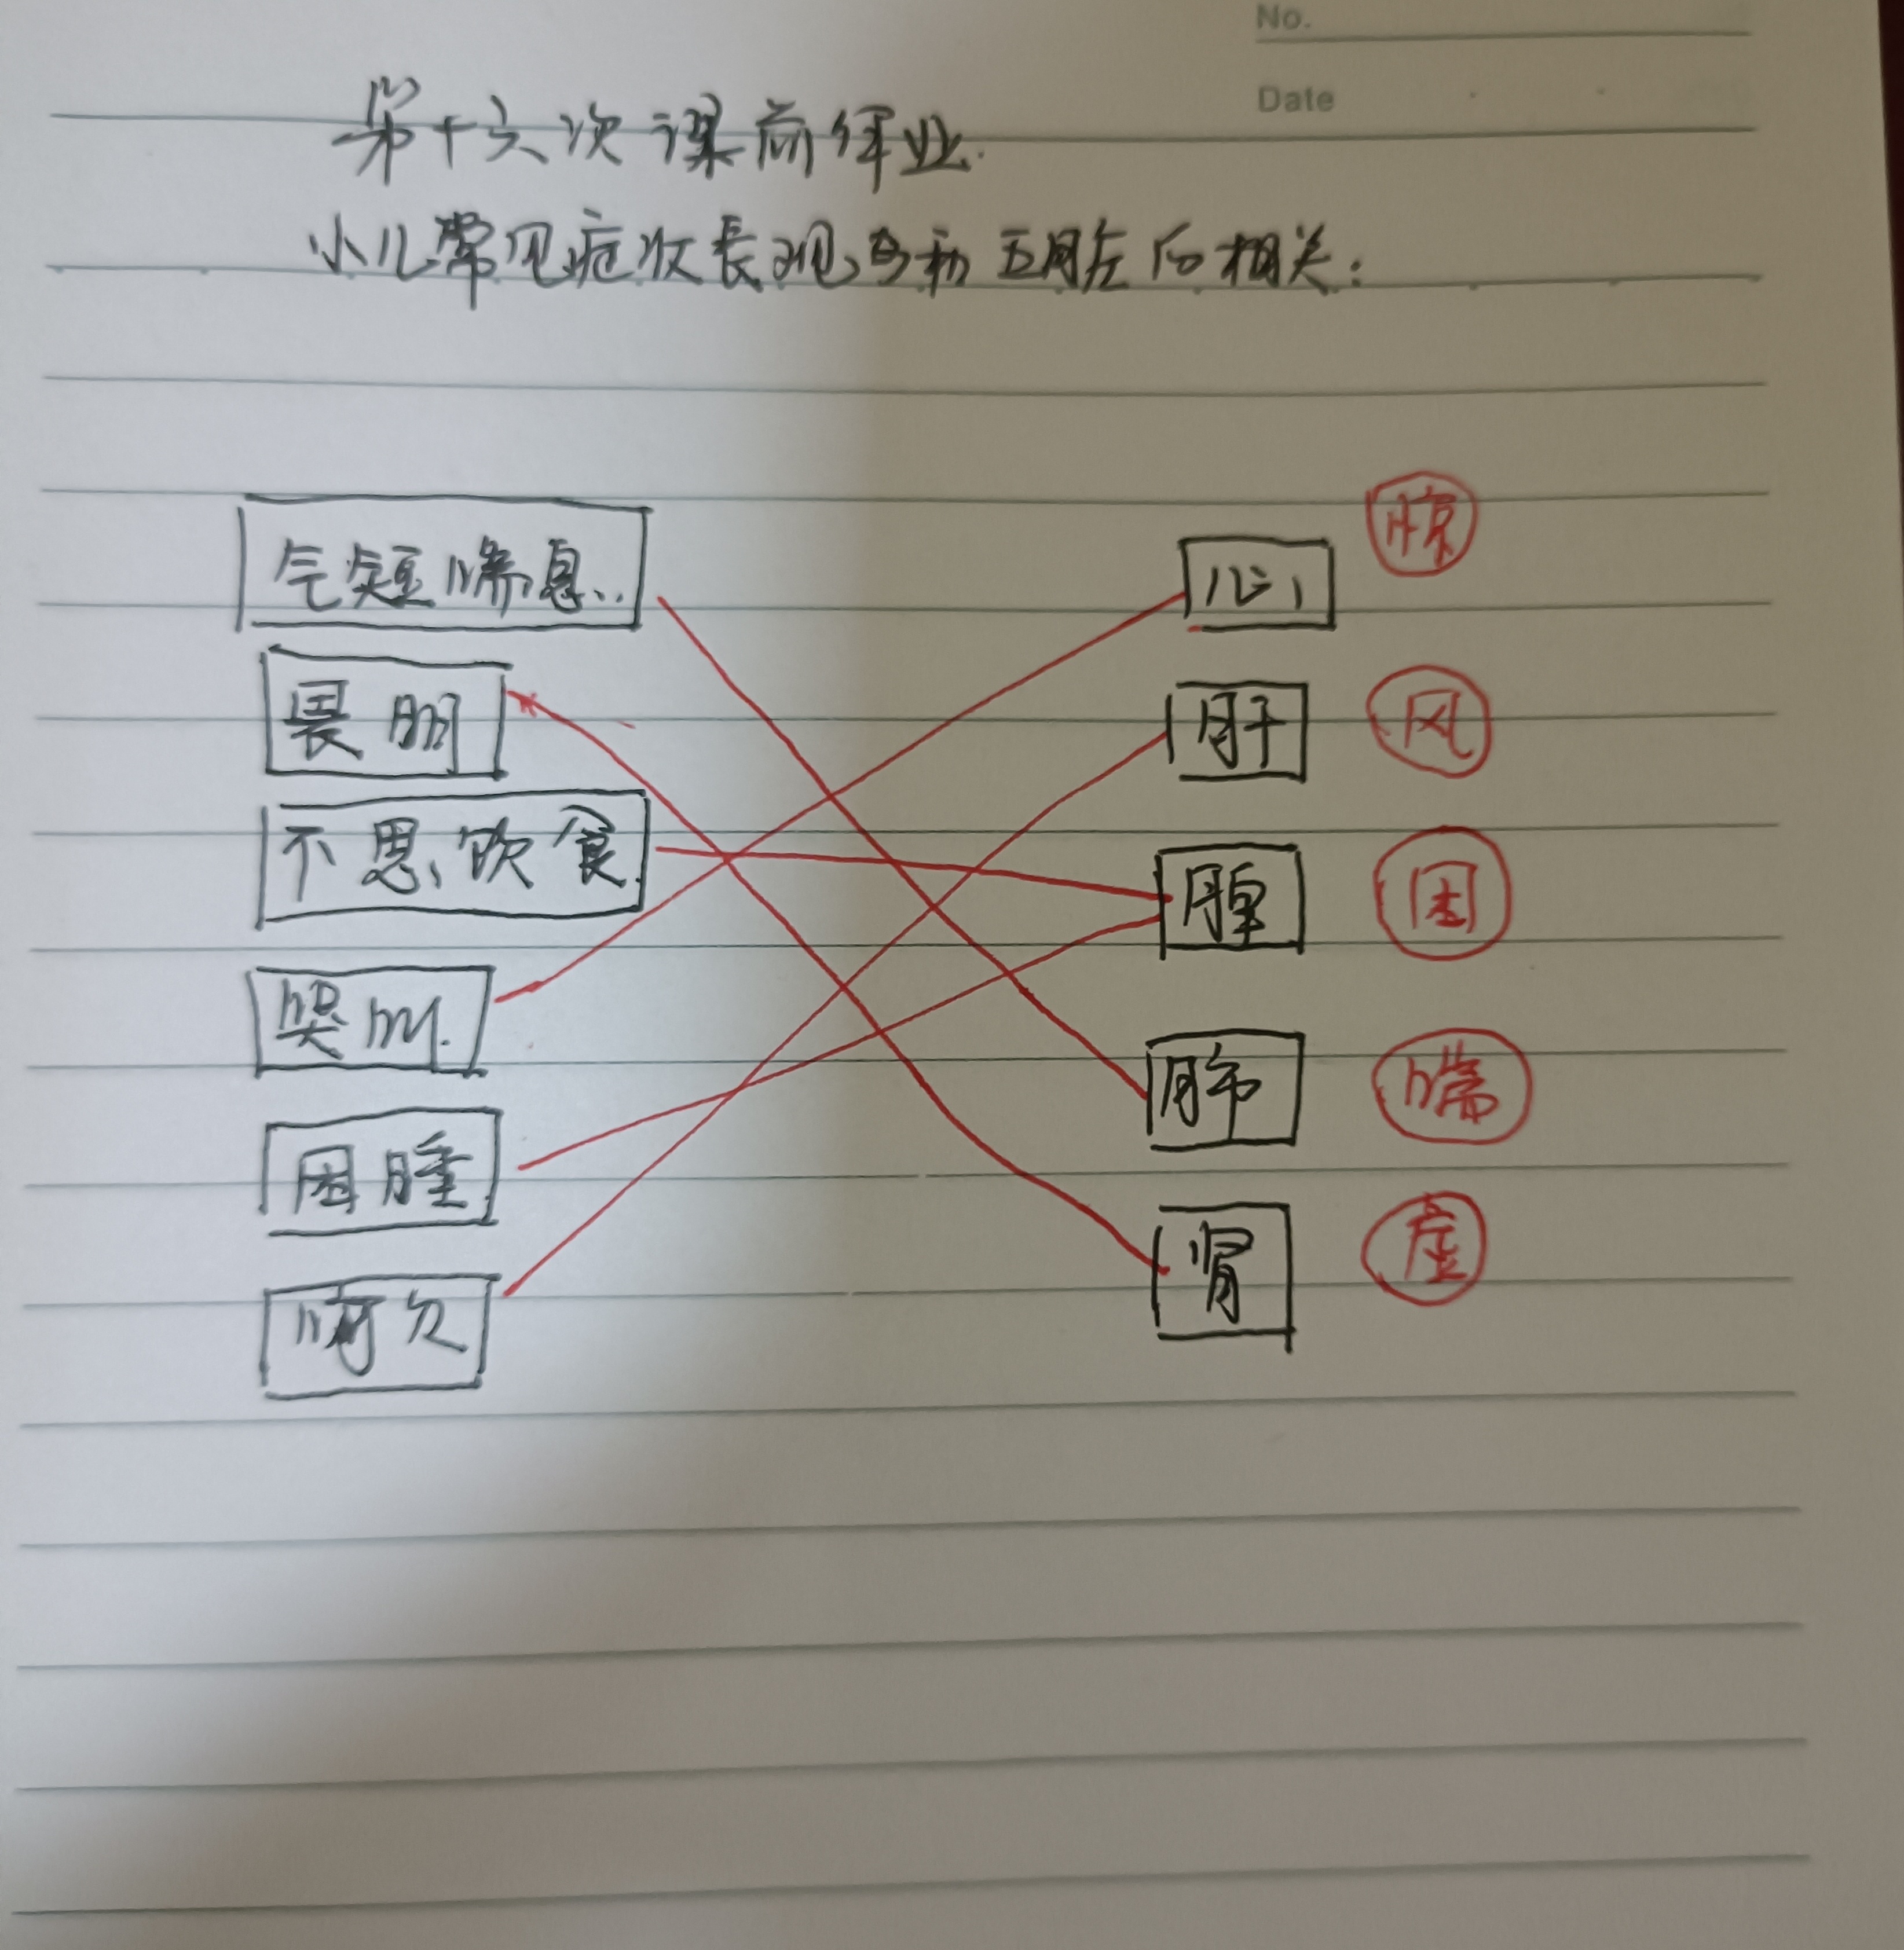 No.
Date
第十六次课前作业.
小儿常见症状表现与和五脏的相关:
气短喘息..
心
惊
畏明
肝
风
不思饮食.
脾
困
哭叫.
肺
喘
困睡
肾
虚
呵欠